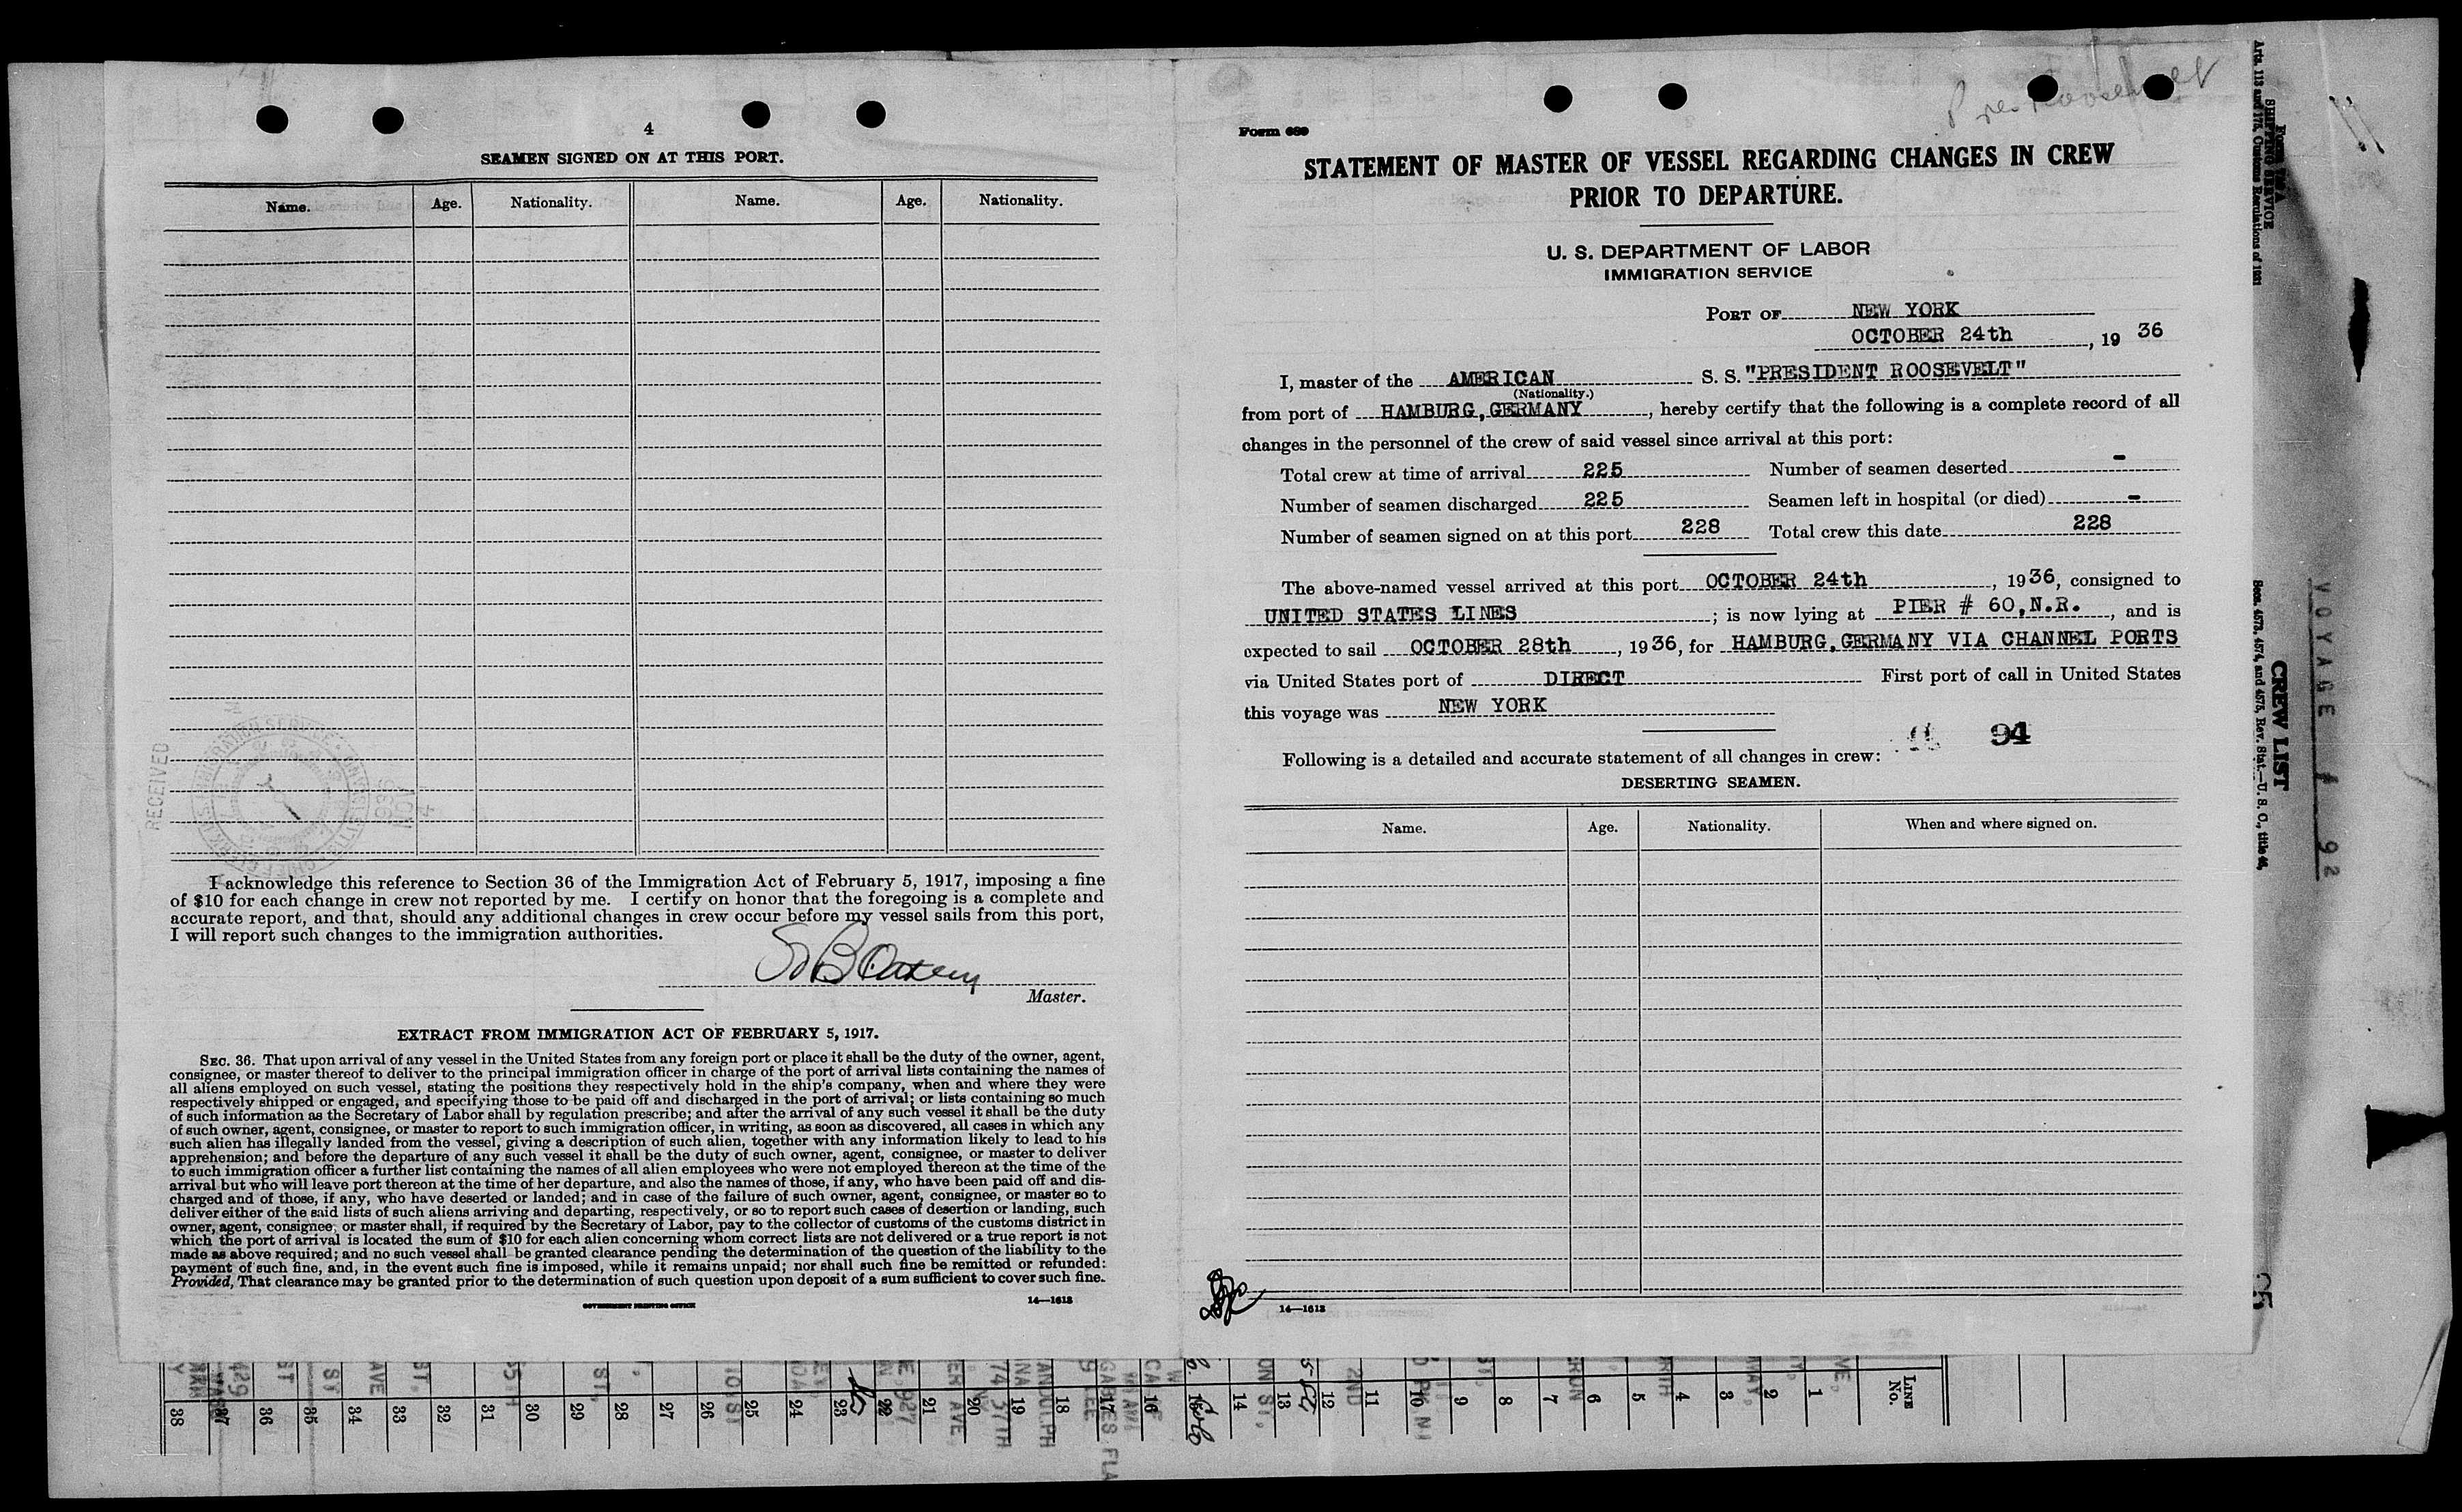 4
SEAMEN SIGNED ON AT THIS PORT.
Name. Age. Nationality. Name. Age. Nationality.
RECEIVED
I acknowledge this reference to Section 36 of the Immigration Act of February 5, 1917, imposing a fine
of $10 for each change in crew not reported by me. I certify on honor that the foregoing is a complete and
accurate report, and that, should any additional changes in crew occur before my vessel sails from this port,
I will report such changes to the immigration authorities.
Master.
EXTRACT FROM IMMIGRATION ACT OF FEBRUARY 5, 1917.
SEC. 36. That upon arrival of any vessel in the United States from any foreign port or place it shall be the duty of the owner, agent,
consignee, or master thereof to deliver to the principal immigration officer in charge of the port of arrival lists containing the names of
all aliens employed on such vessel, stating the positions they respectively hold in the ship's company, when and where they were
respectively shipped or engaged, and specifying those to be paid off and discharged in the port of arrival; or lists containing so much
of such information as the Secretary of Labor shall by regulation prescribe; and after the arrival of any such vessel it shall be the duty
of such owner, agent, consignee, or master to report to such immigration officer, in writing, as soon as discovered, all cases in which any
such alien has illegally landed from the vessel, giving a description of such alien, together with any information likely to lead to his
apprehension; and before the departure of any such vessel it shall be the duty of such owner, agent, consignee, or master to deliver
to such immigration officer a further list containing the names of all alien employees who were not employed thereon at the time of the
arrival but who will leave port thereon at the time of her departure, and also the names of those, if any, who have been paid off and dis-
charged and of those, if any, who have deserted or landed; and in case of the failure of such owner, agent, consignee, or master so to
deliver either of the said lists of such aliens arriving and departing, respectively, or so to report such cases of desertion or landing, such
owner, agent, consignee, or master shall, if required by the Secretary of Labor, pay to the collector of customs of the customs district in
which the port of arrival is located the sum of $10 for each alien concerning whom correct lists are not delivered or a true report is not
made as above required; and no such vessel shall be granted clearance pending the determination of the question of the liability to the
payment of such fine, and, in the event such fine is imposed, while it remains unpaid; nor shall such fine be remitted or refunded:
Provided, That clearance may be granted prior to the determination of such question upon deposit of a sum sufficient to cover such fine.
GOVERNMENT PRINTING OFFICE
14—1613
Pres. Roosevelt
Form 689
STATEMENT OF MASTER OF VESSEL REGARDING CHANGES IN CREW
PRIOR TO DEPARTURE.
U. S. DEPARTMENT OF LABOR
IMMIGRATION SERVICE
PORT OF NEW YORK
OCTOBER 24th, 19 36
I, master of the AMERICAN S. S. "PRESIDENT ROOSEVELT"
(Nationality.)
from port of HAMBURG, GERMANY, hereby certify that the following is a complete record of all
changes in the personnel of the crew of said vessel since arrival at this port:
Total crew at time of arrival 225 Number of seamen deserted -
Number of seamen discharged 225 Seamen left in hospital (or died) -
Number of seamen signed on at this port 228 Total crew this date 228
The above-named vessel arrived at this port OCTOBER 24th, 1936, consigned to
UNITED STATES LINES; is now lying at PIER # 60, N.R., and is
expected to sail OCTOBER 28th, 1936, for HAMBURG, GERMANY VIA CHANNEL PORTS
via United States port of DIRECT First port of call in United States
this voyage was NEW YORK
94
Following is a detailed and accurate statement of all changes in crew:
DESERTING SEAMEN.
Name. Age. Nationality. When and where signed on.
14—1613
SHIPPING SERVICE
Arts. 113 and 175, Customs Regulations of 1931
CREW LIST
Secs. 4573, 4574, and 4575, Rev. Stat.—U. S. C., title 46,
VOYAGE # 92
38 37 36 35 34 33 32 31 30 29 28 27 26 25 24 23 22 21 20 19 18 17 16 15 14 13 12 11 10 9 8 7 6 5 4 3 2 1 LINE No.